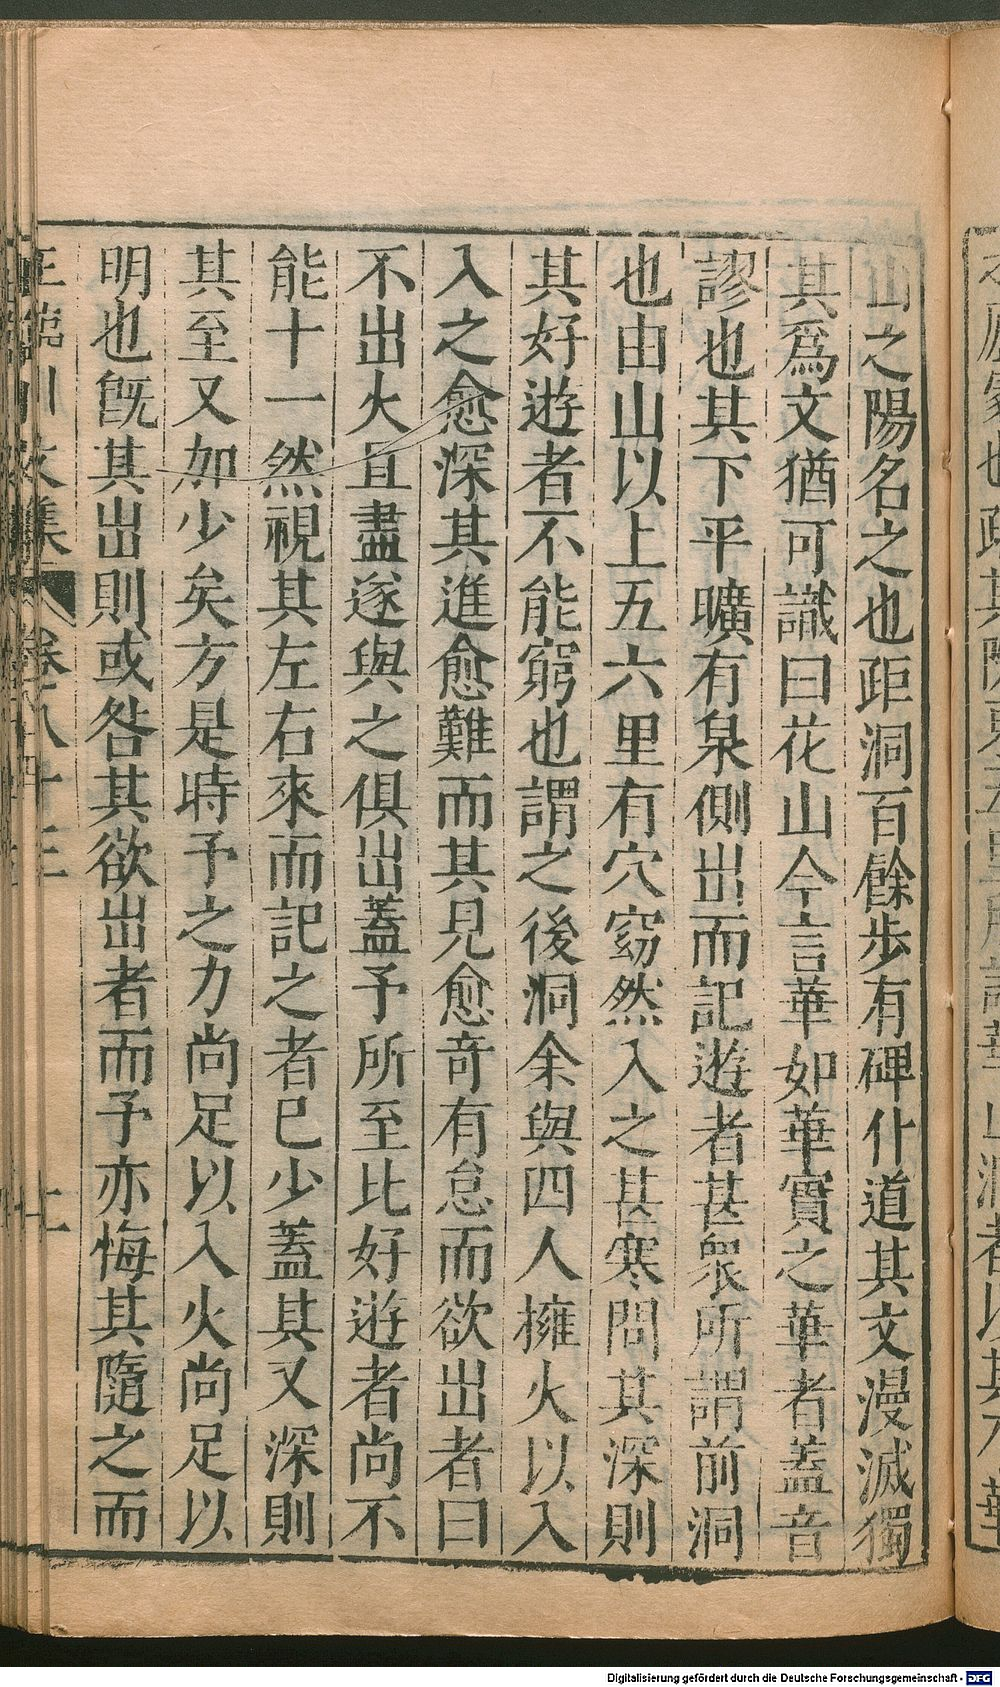 山之陽名之也距洞百餘步有碑仆道其文漫滅獨
其爲文猶可識曰花山今言華如華實之華者蓋音
謬也其下平曠有泉側出而記遊者甚眾所謂前洞
也由山以上五六里有穴窈然入之甚寒問其深則
其好遊者不能窮也謂之後洞余與四人擁火以入
入之愈深其進愈難而其見愈奇有怠而欲出者曰
不出火且盡遂與之俱出蓋予所至比好遊者尚不
能十一然視其左右來而記之者已少蓋其又深則
其至又加少矣方是時予之力尚足以入火尚足以
明也旣其出則或咎其欲出者而予亦悔其隨之而
王臨川文集 卷八十三 十
Digitalisierung gefördert durch die Deutsche Forschungsgemeinschaft - DFG